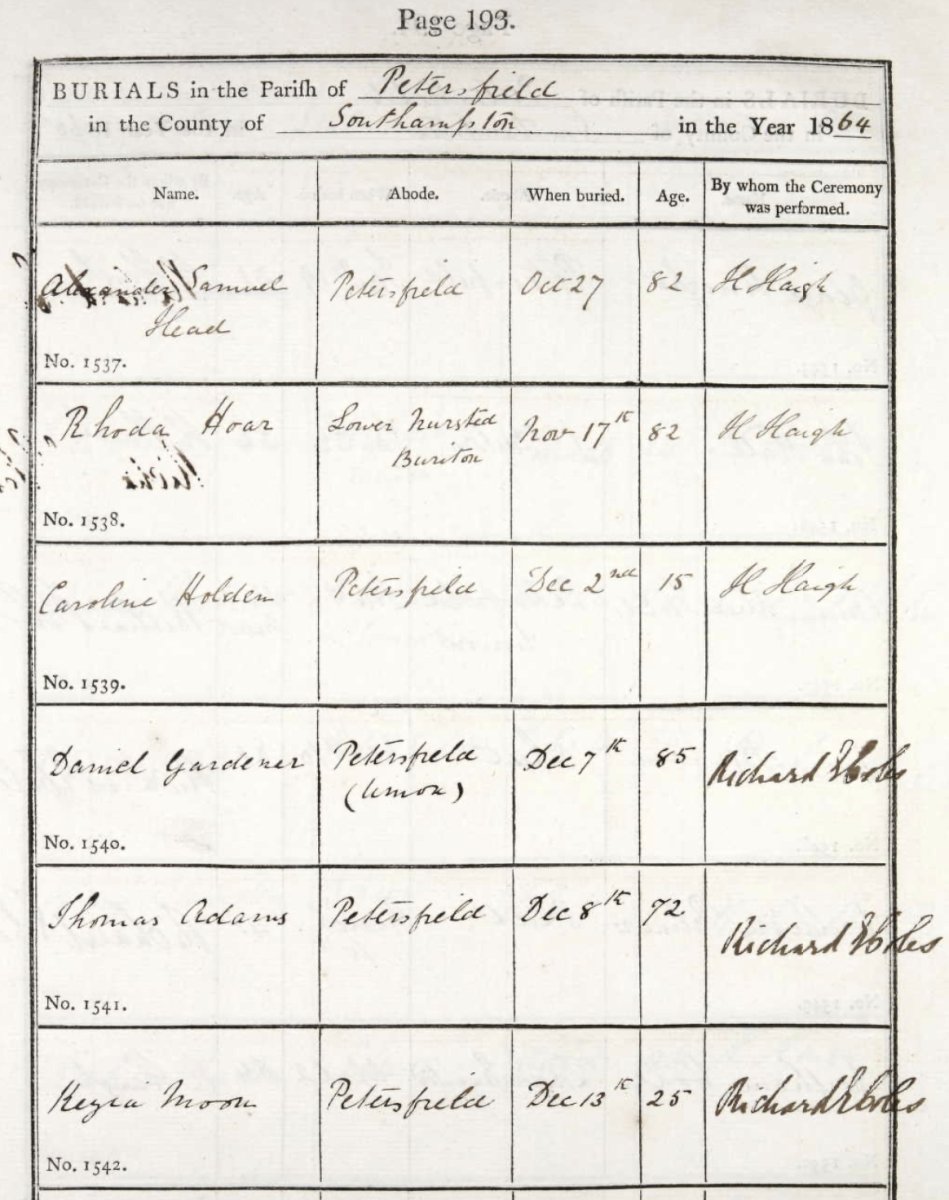 Page 193.
BURIALS in the Parish of Petersfield
in the County of Southampton in the Year 1864
Name. Abode. When buried. Age. By whom the Ceremony was performed.
Alexander Samuel Petersfield Oct 27 82 H Haigh
Head
No. 1537.
Rhoda Hoar Lower Nursted Nov 17th 82 H Haigh
Buriton
No. 1538.
Caroline Holden Petersfield Dec 2nd 15 H Haigh
No. 1539.
Daniel Gardener Petersfield Dec 7th 85 Richard
(Union)
No. 1540.
Thomas Adams Petersfield Dec 8th 72 Richard
No. 1541.
Kezia Moon Petersfield Dec 13th 25 Richard
No. 1542.